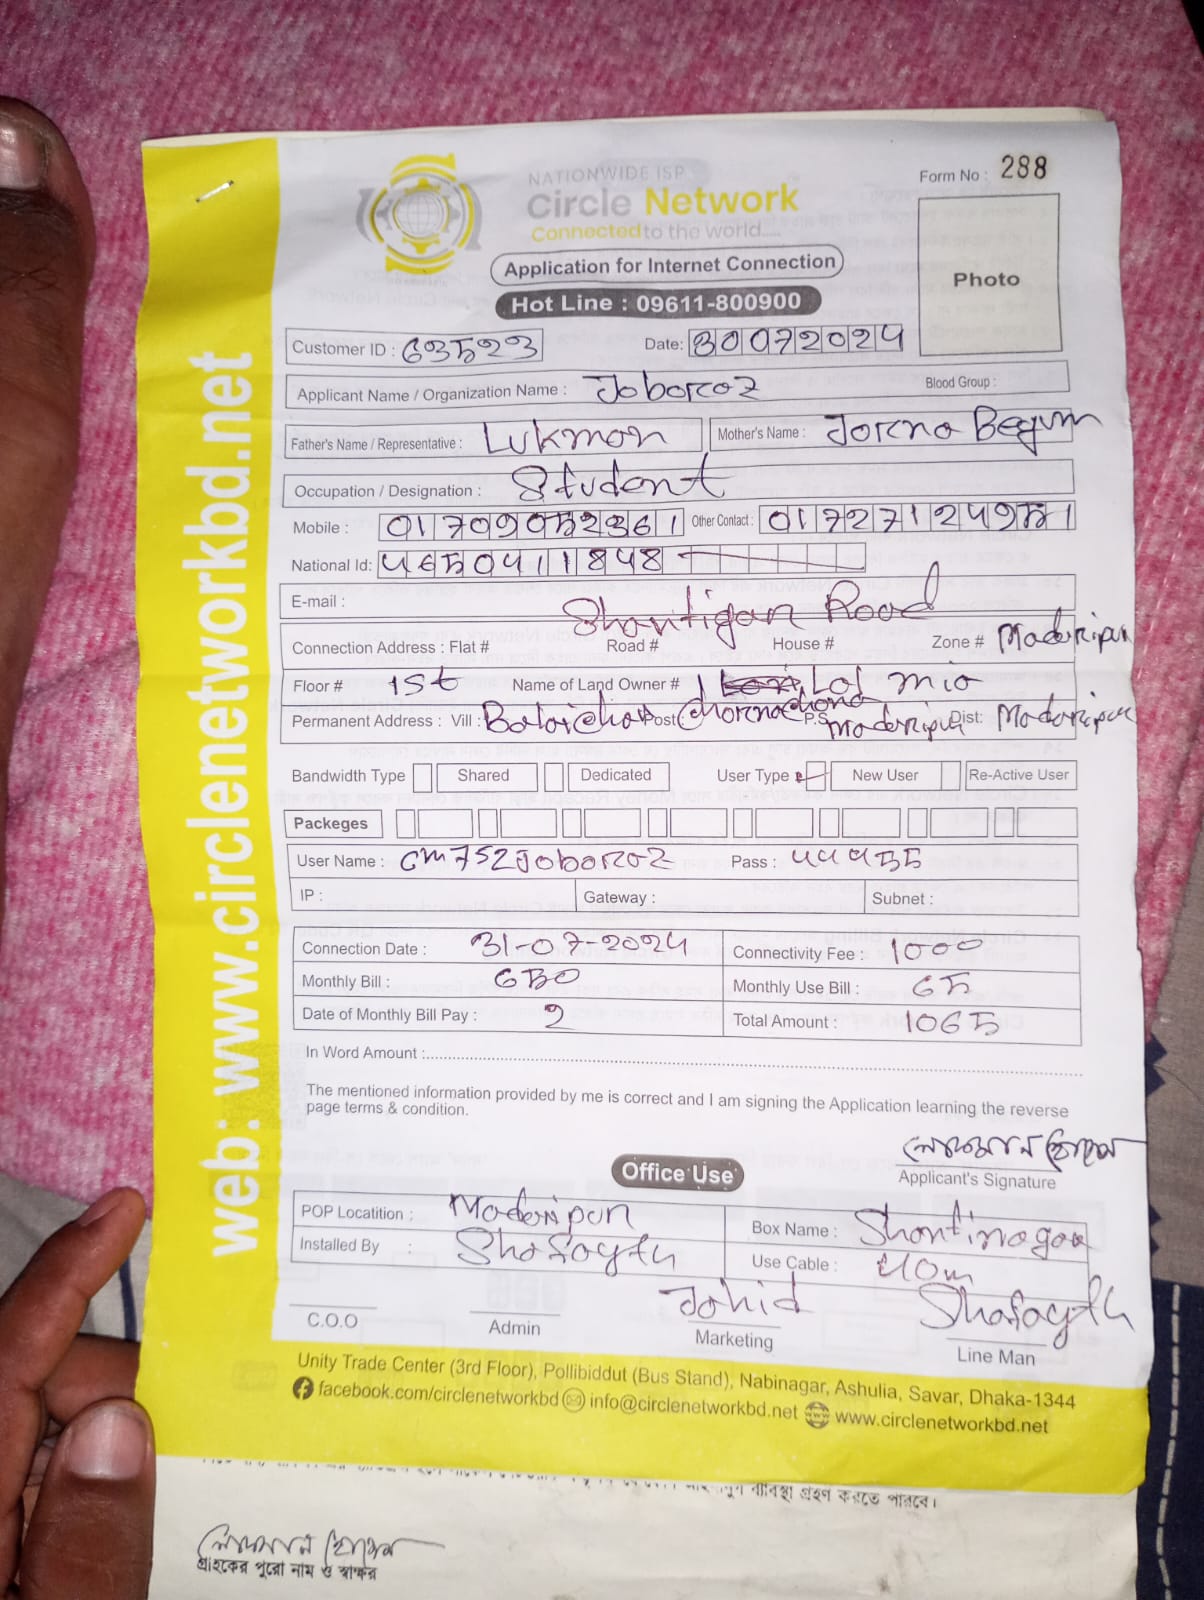 NATIONWIDE ISP
Circle Network
Connected to the world.....
Form No : 288
Photo
Application for Internet Connection
Hot Line : 09611-800900
web: www.circlenetworkbd.net
Customer ID : 63523 Date: 30072024
Applicant Name / Organization Name : Joboroz Blood Group :
Father's Name / Representative : Lukman Mother's Name : Jorna Begum
Occupation / Designation : Student
Mobile : 01709052361 Other Contact : 01727124951
National Id: 4650411848
E-mail :
Shantigan Road
Connection Address : Flat # Road # House # Zone # Madaripur
Floor # 1st Name of Land Owner # Lal mia
Permanent Address : Vill : Balaichar Post: P.S Madaripur Dist: Madaripur
Bandwidth Type Shared Dedicated User Type New User Re-Active User
Packeges
User Name : Pass :
IP : Gateway : Subnet :
Connection Date : 31-07-2024 Connectivity Fee : 1000
Monthly Bill : Monthly Use Bill : 65
Date of Monthly Bill Pay : Total Amount : 1065
In Word Amount :
The mentioned information provided by me is correct and I am signing the Application learning the reverse
page terms & condition.
Applicant's Signature
Office Use
POP Locatition : Madaripur Box Name : Shantinagar
Installed By : Shafayth Use Cable : 40m
Jahid Shafayth
C.O.O Admin Marketing Line Man
Unity Trade Center (3rd Floor), Pollibiddut (Bus Stand), Nabinagar, Ashulia, Savar, Dhaka-1344
facebook.com/circlenetworkbd info@circlenetworkbd.net www.circlenetworkbd.net
ব্যবস্থা গ্রহণ করতে পারবে।
গ্রাহকের পুরো নাম ও স্বাক্ষর